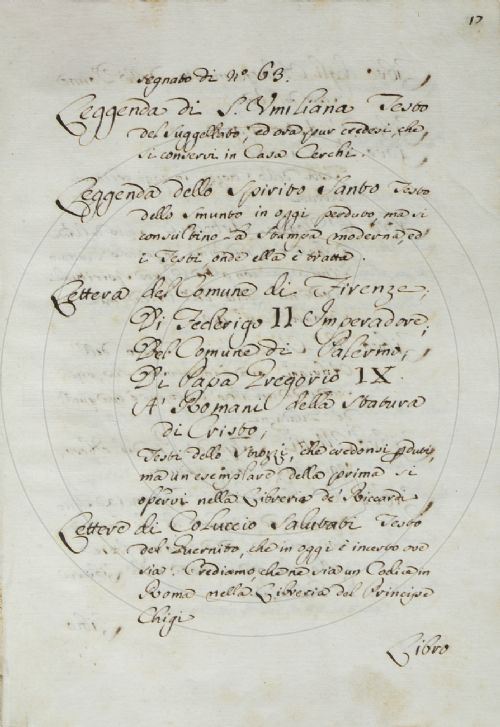 17
segnato di Nº. 63.
Leggenda di S. Vmiliana Testo
del Suggellato, ed ora pur credesi, che
si conservi in Casa Cerchi.
Leggenda dello Spirito Santo Testo
dello Smunto in oggi perduto, ma si
consultino la Stampa moderna, ed
i Testi onde ella è tratta.
Lettera del Comune di Firenze;
Di Federigo II Imperadore;
Del Comune di Palermo;
Di Papa Gregorio IX.
A' Romani della Statura
di Cristo;
Testi dello Strozzi, che credonsi perduti,
ma un esemplare della prima si
osservi nella Libreria de' Riccardi
Lettere di Coluccio Salutati Testo
del Guernito, che in oggi è incerto ove
sia. Crediamo, che ne sia un Codice in
Roma nella Libreria del Principe
Chigi
Libro